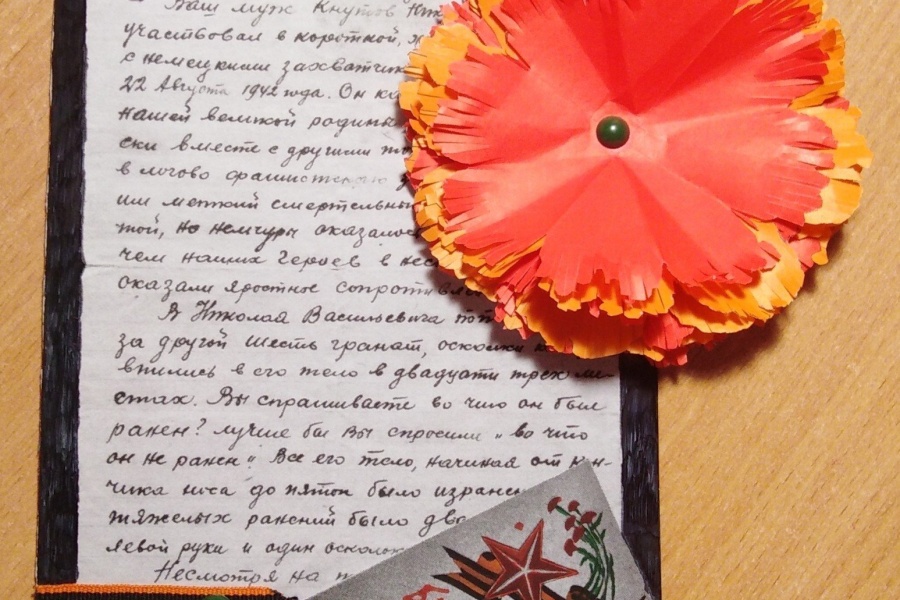 Ваш муж Кнутов Ник
участвовал в короткой, ж
с немецкими захватчик
22 Августа 1942 года. Он ка
нашей великой родины
ски вместе с другими то
в логово фашистскую
им меткий смертельный
той, но немчуры оказалос
чем наших Героев в нес
оказали яростное сопротивлен
Я Николая Васильевича пот
за другой шесть гранат, осколки к
впились в его тело в двадцати трех ме-
стах. Вы спрашиваете во что он был
ранен? лучше бы Вы спросили „во что
он не ранен". Все его тело, начиная от кон-
чика носа до пяток было изранен
тяжелых ранений было два
левой руки и один осколок
Несмотря на п